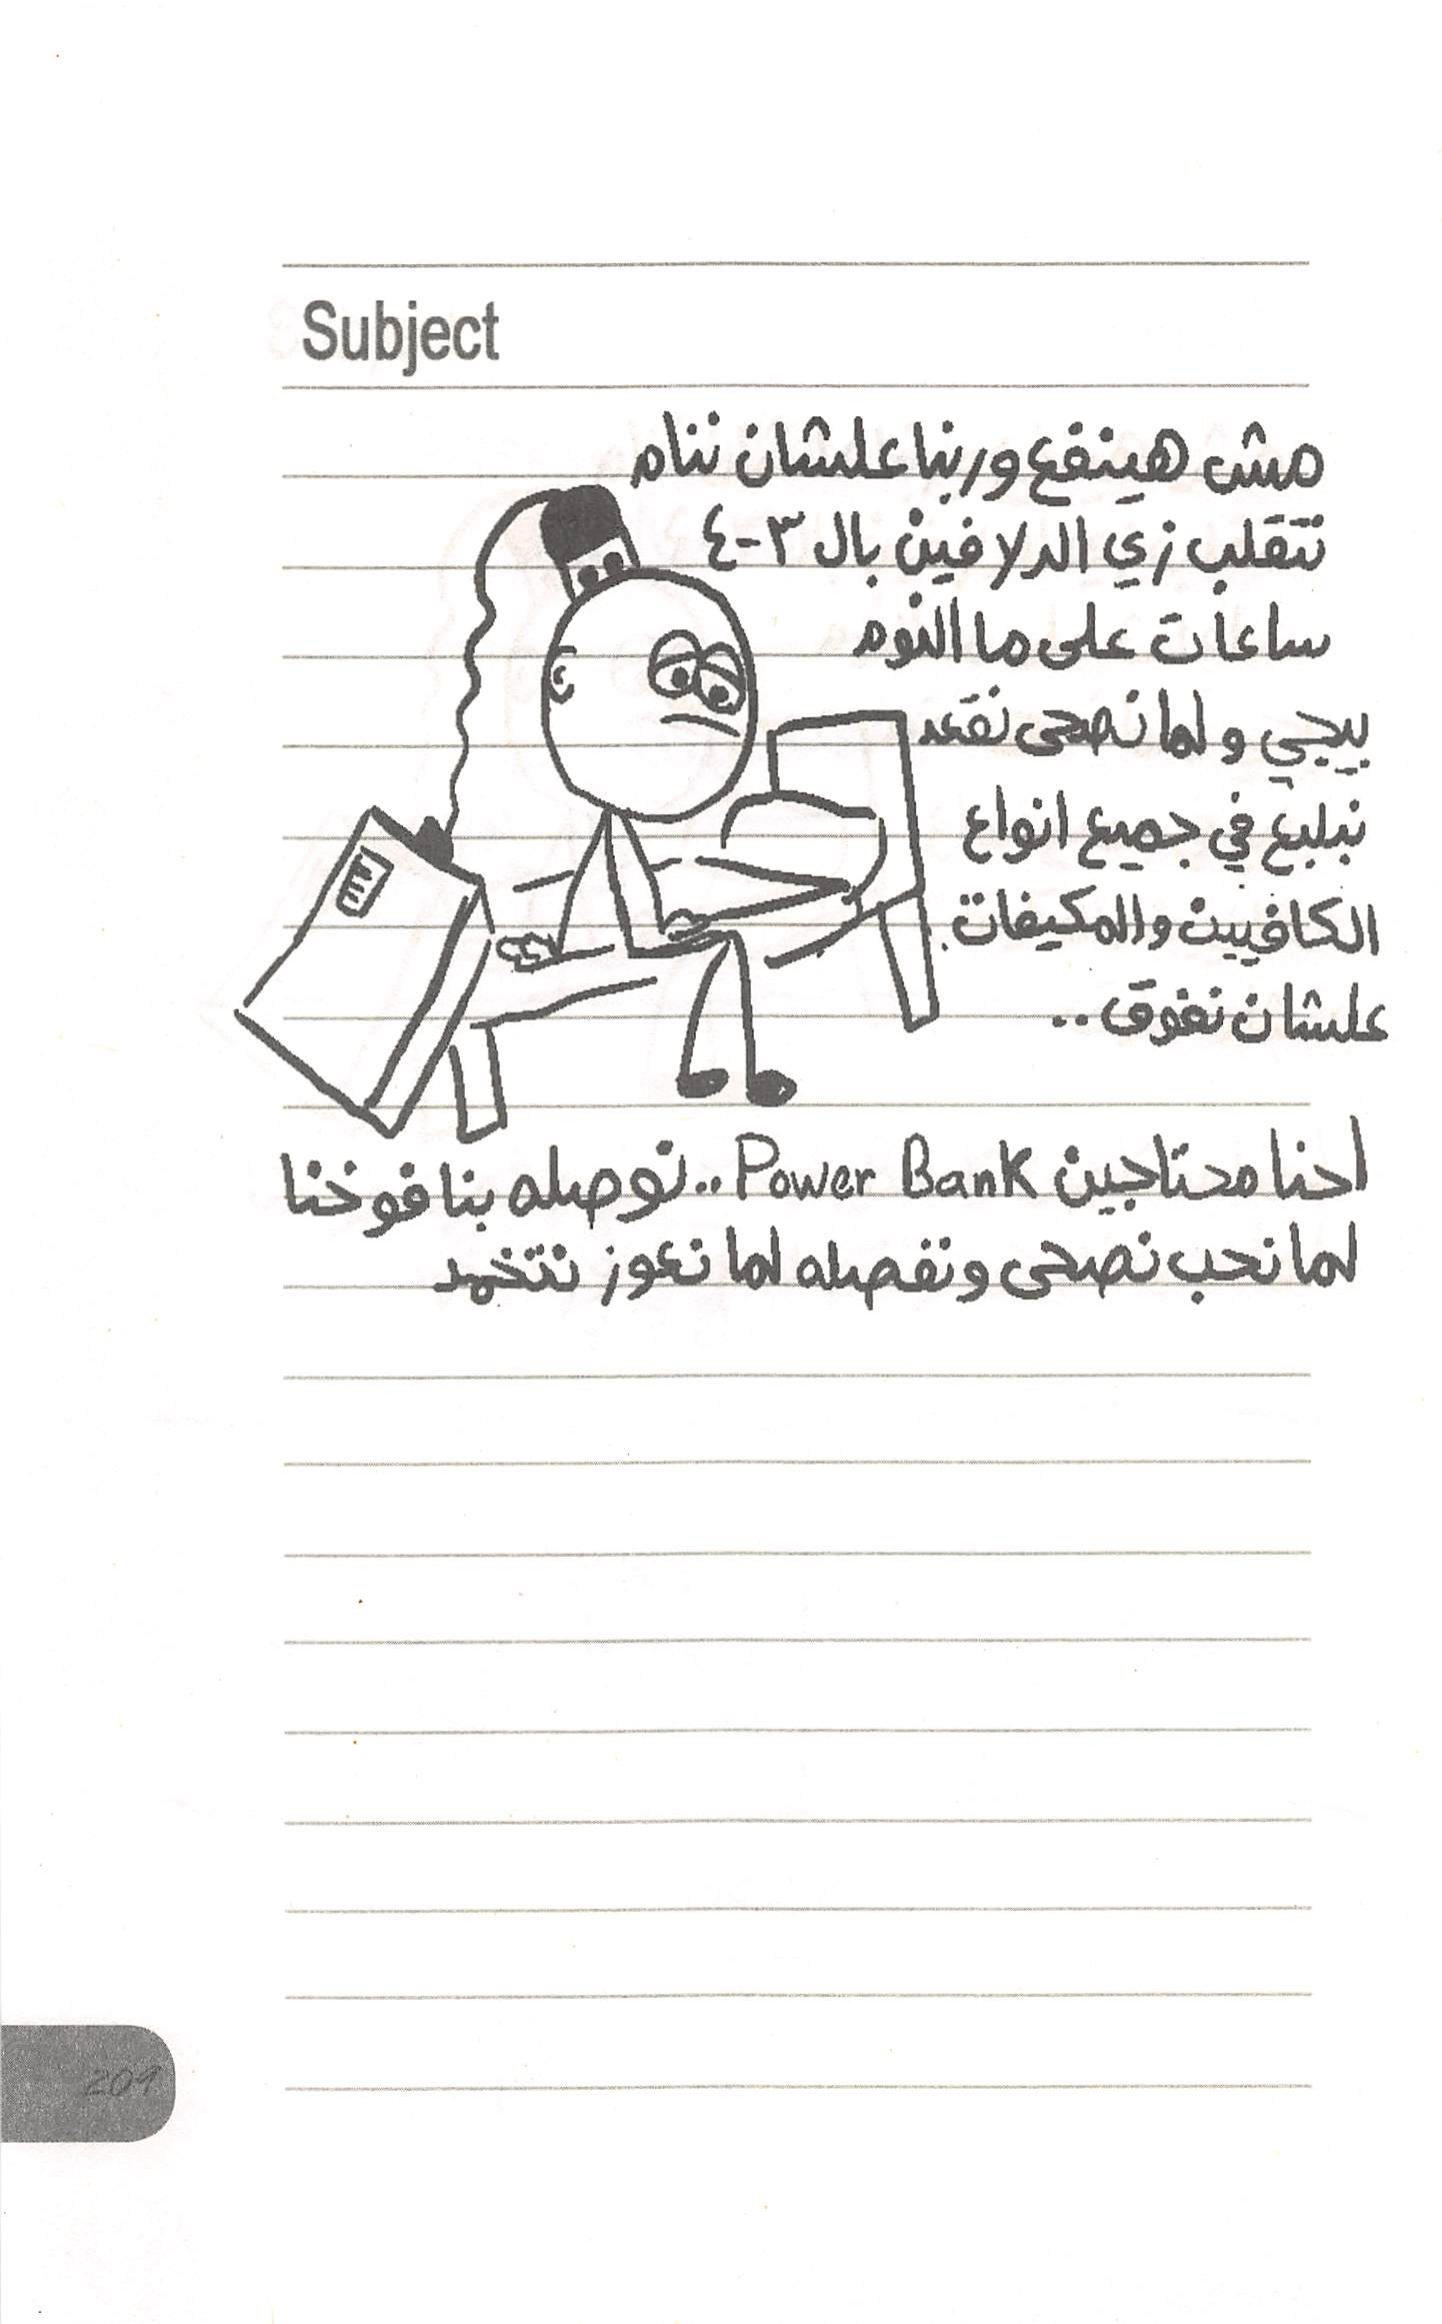 Subject
مش هينفع وربنا علشان ننام
نتقلب زي الدلافين بال ٣-٤
ساعات على ما النوم
ييجي و لما نصحى نقعد
نبلبع في جميع انواع
الكافيين والمكيفات
علشان نفوق..
احنا محتاجين Power Bank.. نوصله بنافوخنا
لما نحب نصحى ونفصله لما نعوز نتخمد
209